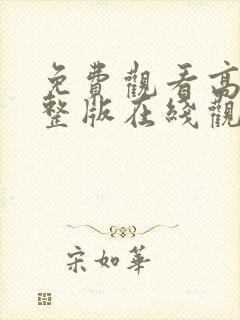 免費觀看高
整版在綫觀
宋如華